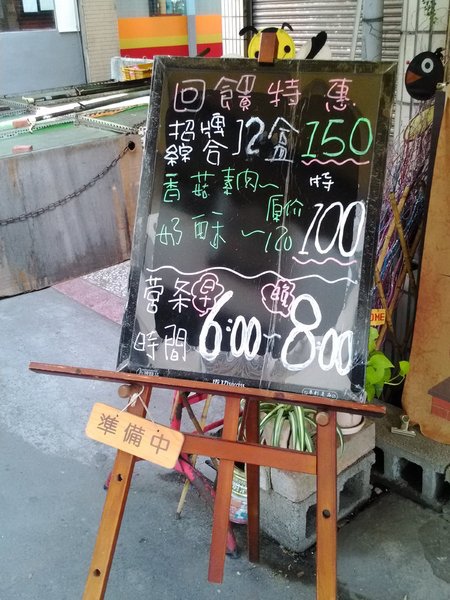 回饋特惠
招牌
綜合12盒150
香菇素肉~ 特
奶酥~ 原价120 100
营業 早 晚
時間 6:00-8:00
準備中